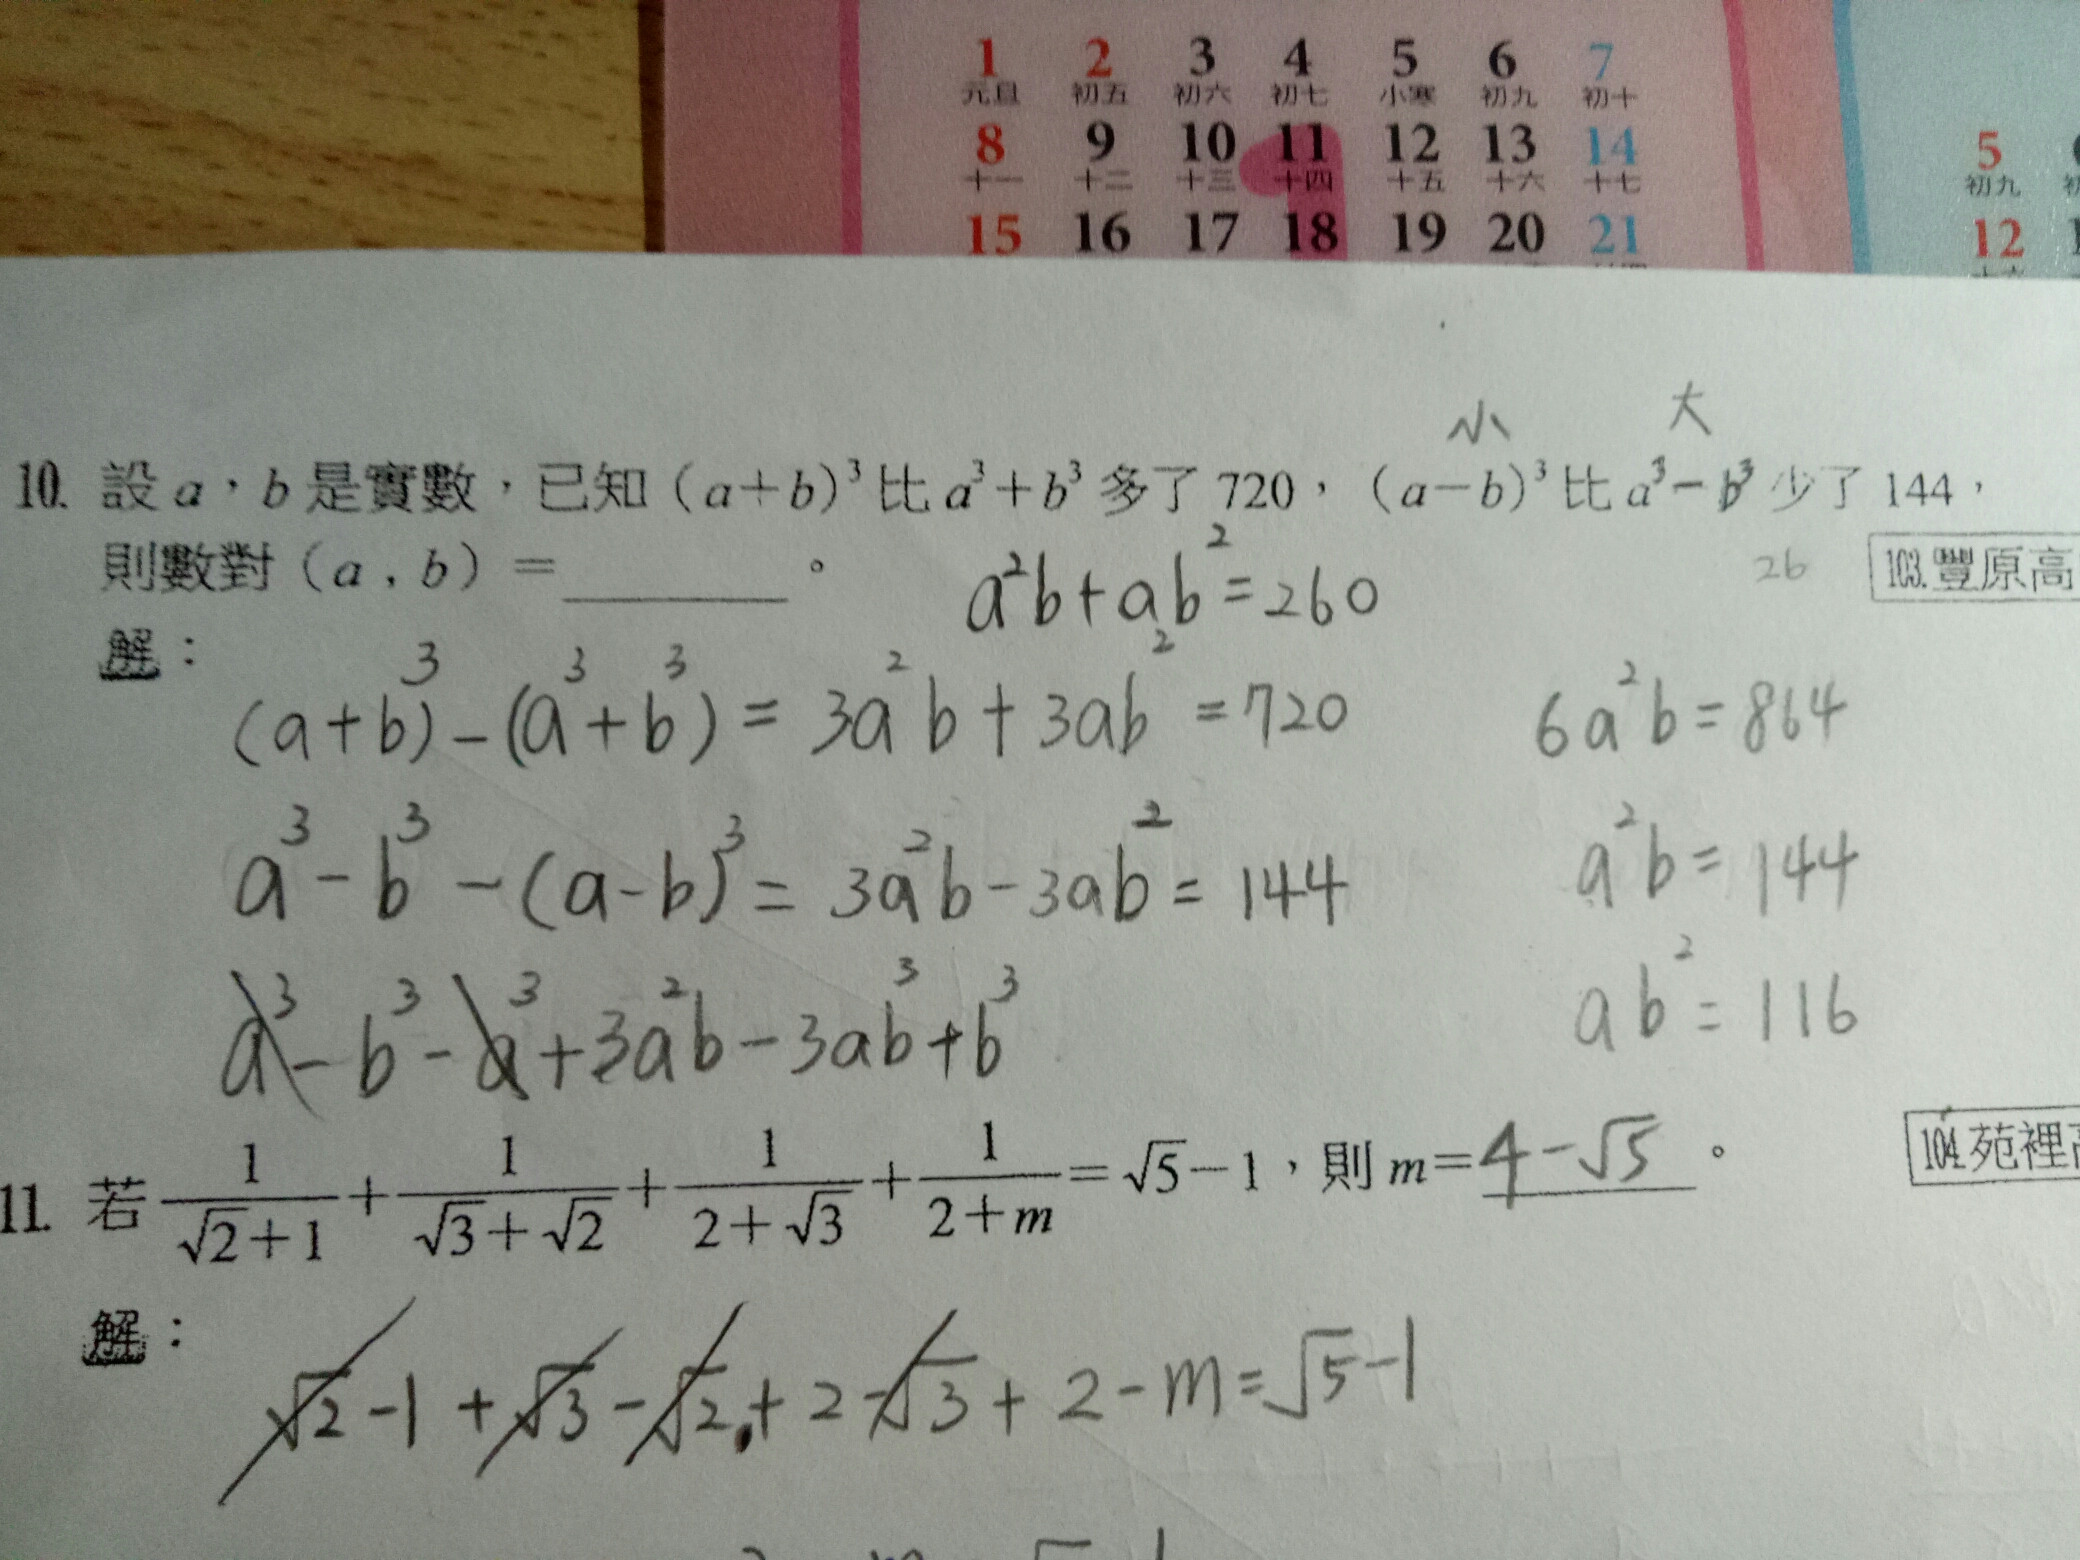 1 2 3 4 5 6 7
元旦 初五 初六 初七 小寒 初九 初十
8 9 10 11 12 13 14
十一 十二 十三 十四 十五 十六 十七
15 16 17 18 19 20 21
5
初九
12
小 大
10. 設 a，b 是實數，已知（a＋b）³ 比 a³＋b³ 多了 720，（a－b）³ 比 a³－b³ 少了 144，
則數對（a , b）＝______。
26
103.豐原高
a²b+ab²=260
解：
(a+b)³-(a³+b³)=3a²b+3ab²=720
6a²b=864
a³-b³-(a-b)³=3a²b-3ab²=144
a²b=144
a³-b³-a³+3a²b-3ab³+b³
ab²=116
11. 若 1/(√2＋1)＋1/(√3＋√2)＋1/(2＋√3)＋1/(2＋m)＝√5－1，則 m＝4-√5。
104.苑裡高
解：
√2-1+√3-√2+2-√3+2-m=√5-1